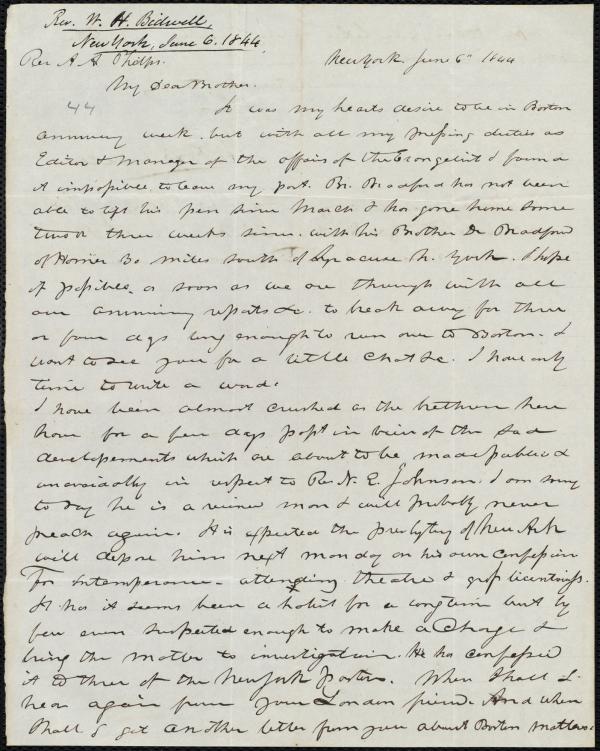 Rev. W. H. Bidwell,
New York, June 6. 1844.
Rev A A Phelps.
New York June 6th 1844
My Dear Brother.
44
It was my hearts desire to be in Boston
anniversary week. but with all my pressing duties as
Editor & Manager of the affairs of the Evangelist I found
it impossible to leave my post. Br. Bradford has not been
able to lift his pen since March & has gone home some
two or three weeks since. with his Brother Dr Bradford
of Homer 30 miles south of Syracuse N. York. I hope
if possible, as soon as we are through with all
our anniversary reports &c. to break away for three
or four days long enough to run over to Boston. I
want to see you for a little chat &c. I have only
time to write a word.
I have been almost crushed as the brethren here
have for a few days past in view of the sad
developements which are about to be made public &
unavoidably in respect to Rev N. E. Johnson. I am sorry
to say he is a ruined man & will probably never
preach again. It is expected the presbytery of New Ark
will depose him next monday on his own confession
For intemperance - attending theatre & gross licentiousness.
It has it seems been a habit for a long time but by
few even suspected enough to make a Charge &
bring the matter to investigation. He has confessed
it to three of the New York pastors. When shall I
hear again from your London friend. And when
shall I get another letter from you about Boston matters.